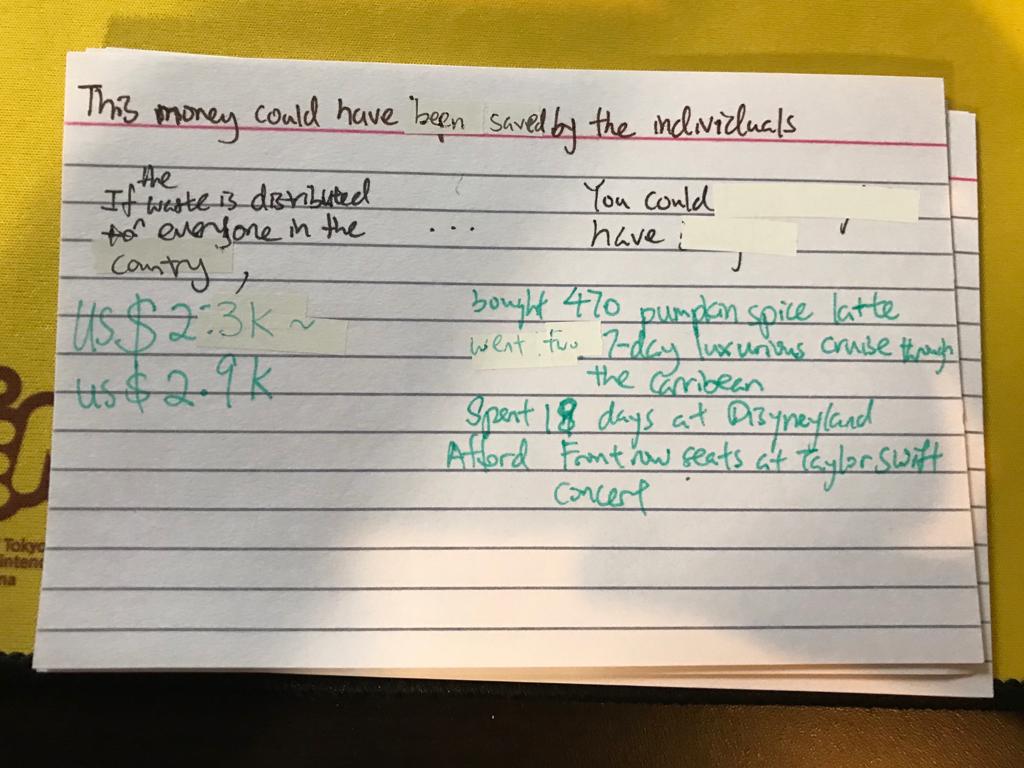 This money could have been saved by the individuals
If the waste is distributed
to everyone in the
country,
...
You could
have
US$ 2.3k ~
US$ 2.9k
bought 470 pumpkin spice latte
went two 7-day luxurious cruise through
the Carribean
Spent 18 days at Disyneyland
Afford Front row seats at Taylor Swift
concert
Tokyo